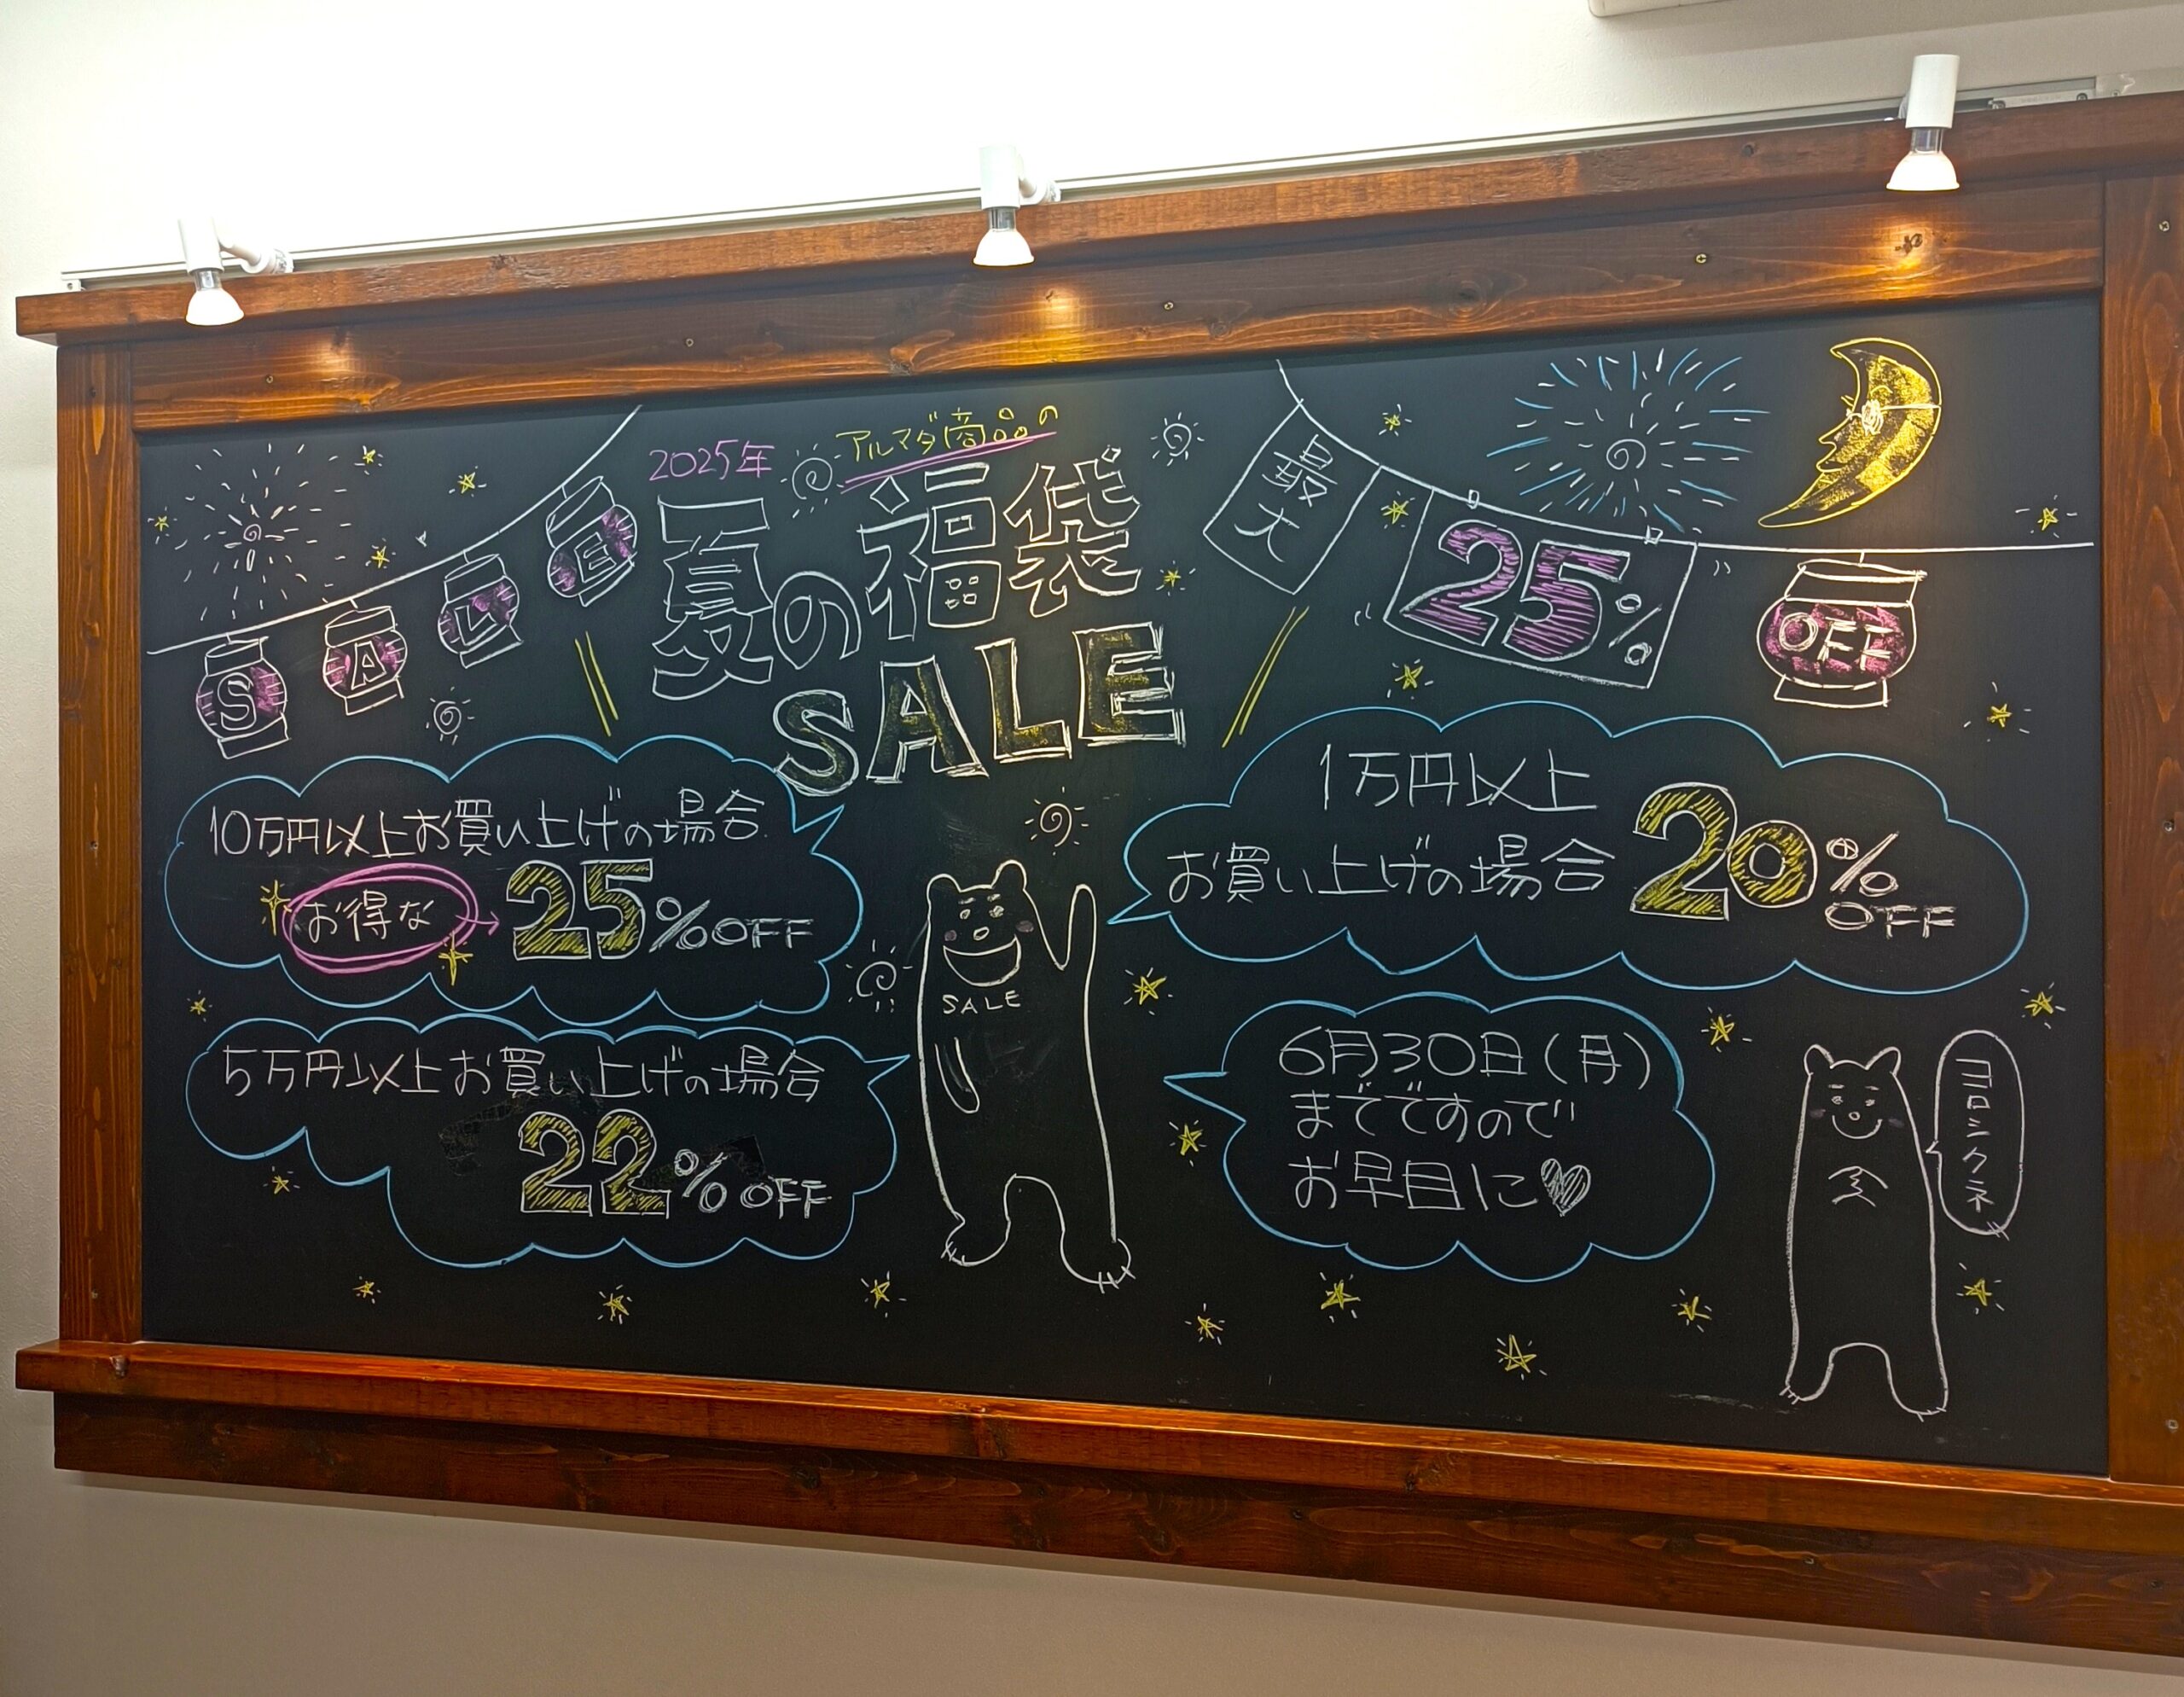 2025年
アルマダ商品の
夏の福袋
SALE
SALE
最大
25%
OFF
10万円以上お買い上げの場合
お得な
25%OFF
5万円以上お買い上げの場合
22%OFF
SALE
1万円以上
お買い上げの場合
20%
OFF
6月30日(月)
までですので
お早目に♡
ヨロシクネ